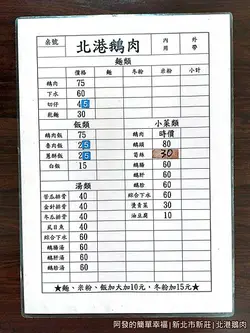 桌號 北港鵝肉 內用 外帶
麵類
價格 麵 冬粉 米粉 小計
鵝肉 75
下水 60
切仔 45
乾麵 30
飯類 小菜類
鵝肉飯 75 鵝肉 時價
魯肉飯 25 鵝頭 80
蔥酥飯 25 筍絲 30
白飯 15 鵝腸 60
鵝肝 60
湯類 鵝胗 60
苦瓜排骨 40 綜合下水 60
金針排骨 40 燙青菜 30
冬瓜排骨 40 油豆腐 10
虱目魚 60
綜合下水 60
鵝腸湯 60
鵝肝湯 60
鵝胗湯 60
★麵、米粉、飯加大加10元,冬粉加15元★
阿發的簡單幸福|新北市新莊|北港鵝肉